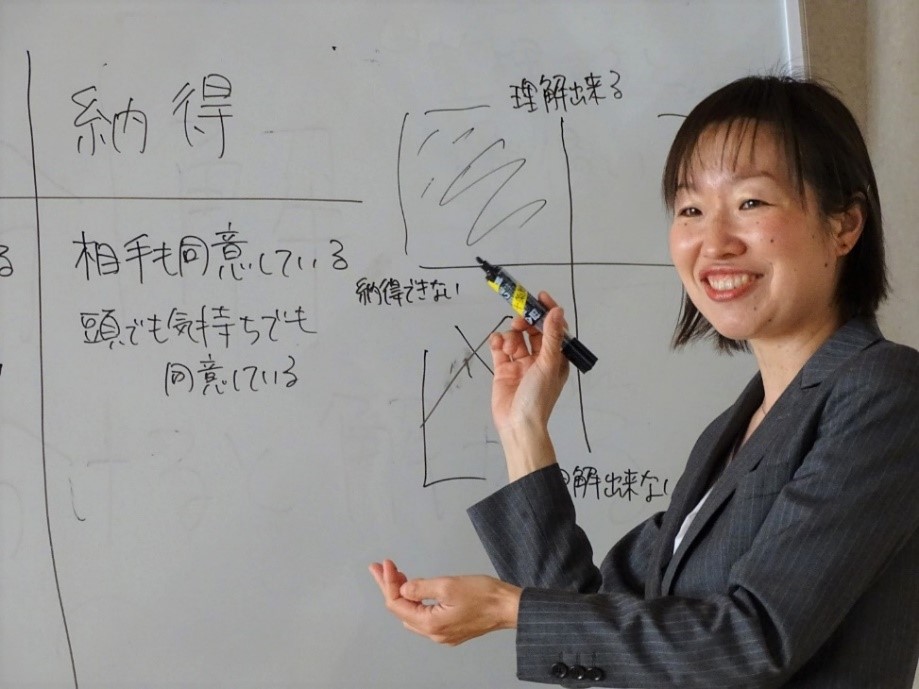 納得
相手も同意している
頭でも気持ちでも
同意している
る
理解出来る
納得できない
解出来ない